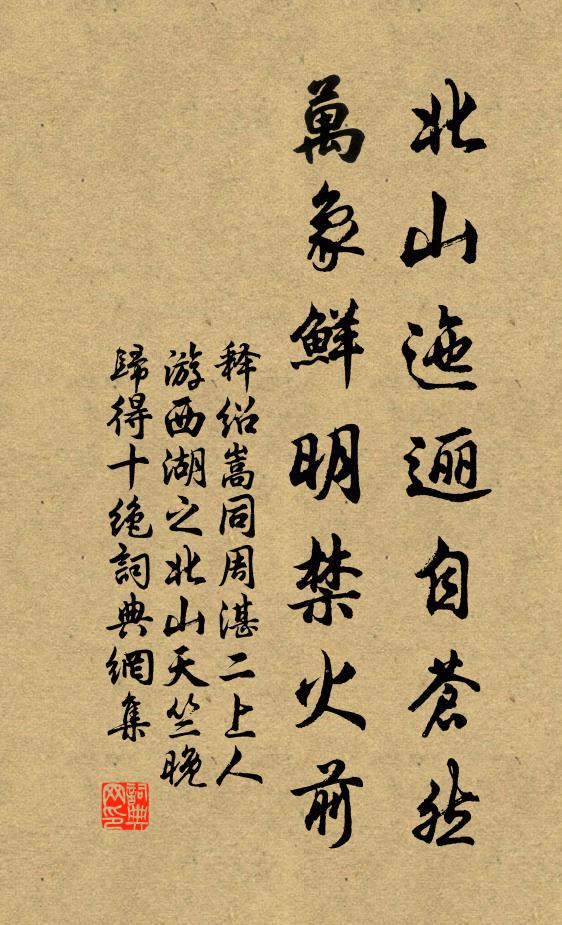 北山迤逦自蒼然
萬象鮮明禁火前
释绍嵩同周湛二上人
游西湖之北山天竺晚
歸得十绝詞典網集
詞典网印